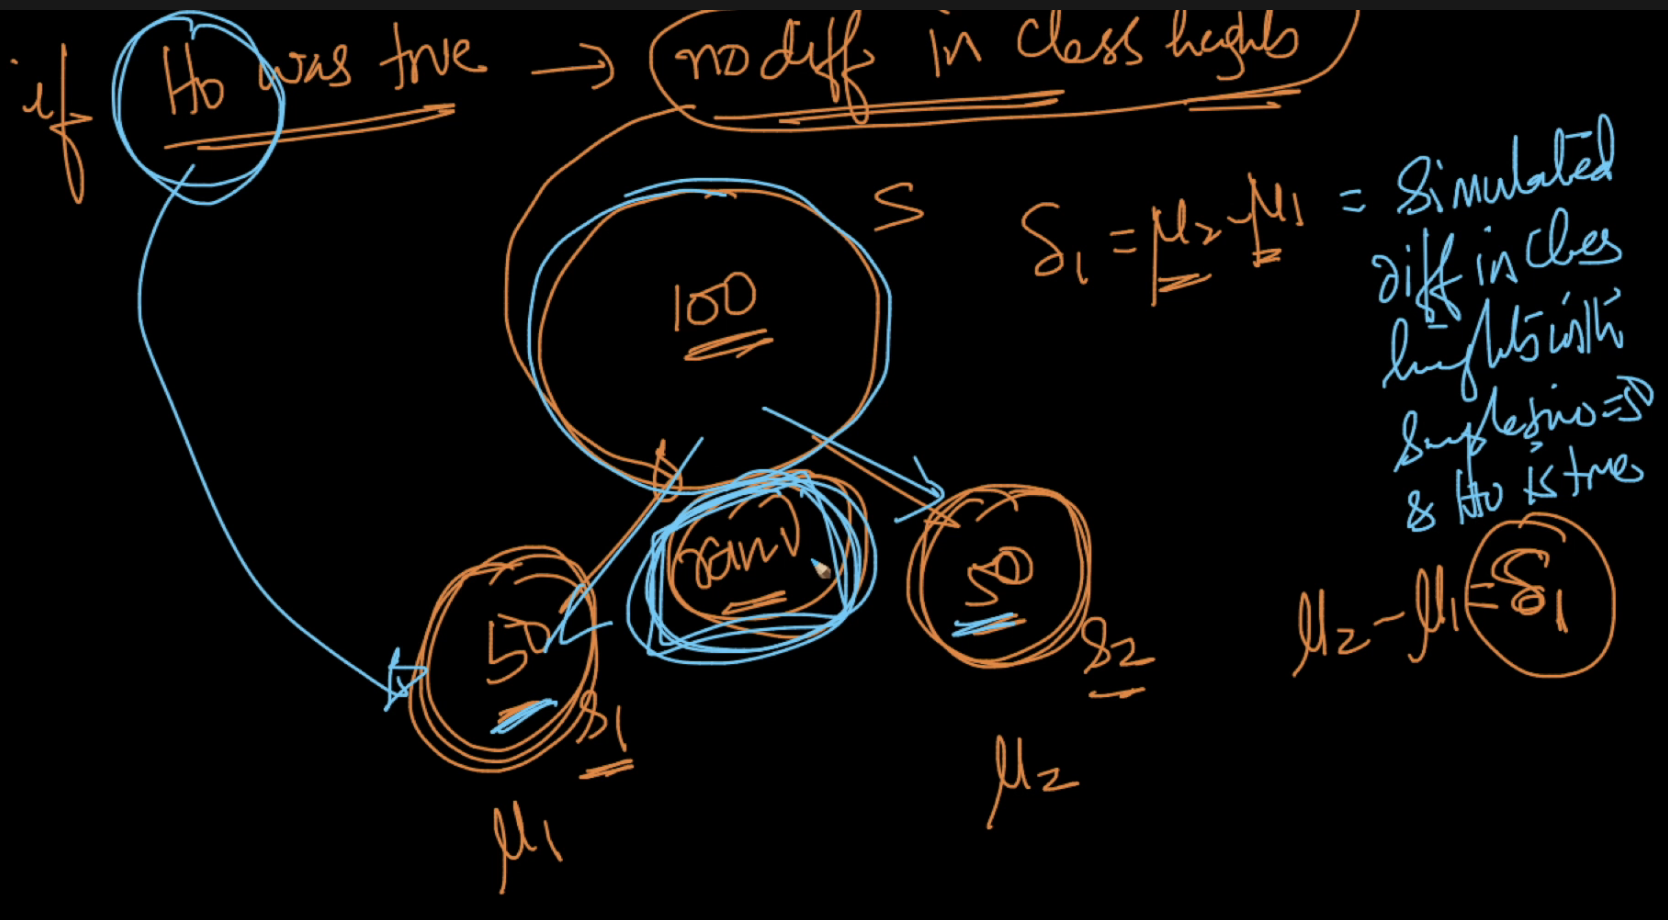 if H0 was true → no diff in class heights
S
δ1 = μ2 - μ1 = Simulated
diff in class
heights with
sample size = 50
& H0 is true
100
rand
50
50
S1
S2
μ2 - μ1 = δ1
μ1
μ2